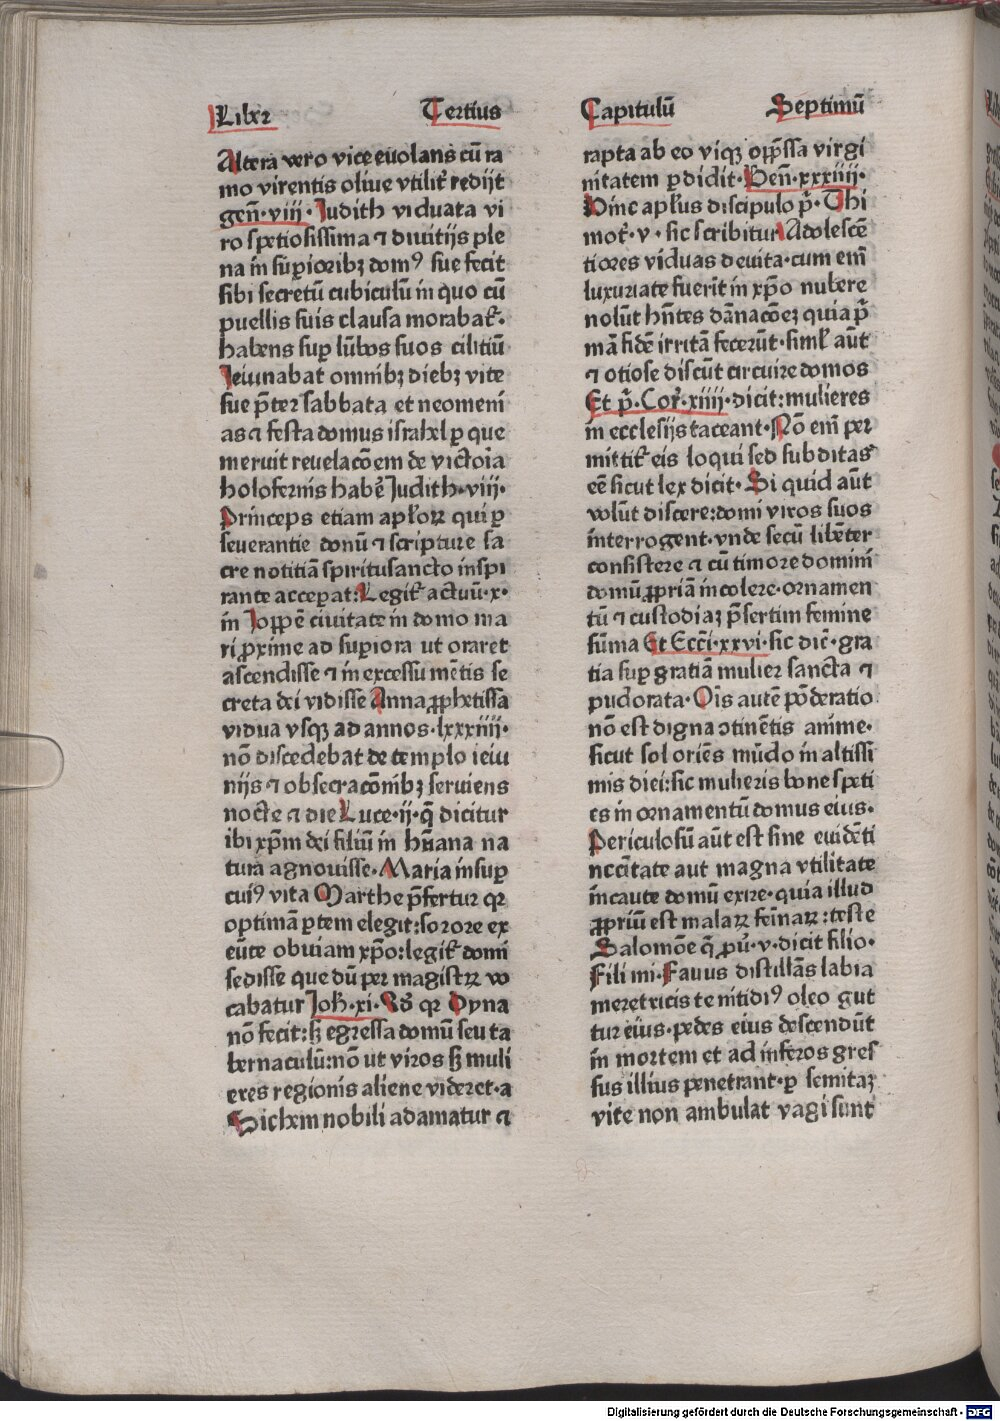 Liber Tertius
Altera vero vice euolans cū ra
mo virentis oliue vtilit̄ redijt
gen̄·viij· Judith viduata vi
ro spetiosissima ⁊ diuitijs ple
na in sup̱iorib⁊ domꝰ sue fecit
sibi secretū cubiculū in quo cū
puellis suis clausa morabat̄·
habens sup̱ lūbos suos cilitiū
Jeiunabat omnib⁊ dieb⁊ vite
sue p̄ter sabbata et neomeni
as ⁊ festa domus israhel ꝑ que
meruit reuelacōem de victoīa
holofernis habē Judith·viij·
Princeps etiam apl̄oꝝ qui ꝑ
seuerantie donū ⁊ scripture sa
cre notitiā spiritusancto inspi
rante acceꝑat: Legit̄ actuū·x·
in Joppē ciuitate in domo ma
ri ꝓxime ad suꝑiora ut oraret
ascendisse ⁊ in excessu mētis se
creta dei vidisse Anna ꝓphetissa
vidua vsqꝫ ad annos·lxxxiiij·
nō discedebat de templo ieiu
nijs ⁊ obsecracōnibꝫ seruiens
nocte ⁊ die Luce·ij·q̄ dicitur
ibi xp̄m dei filiū in hūana na
tura agnouisse· Maria insuꝑ
cuiꝰ vita Marthe p̄fertur qꝛ
optimā ꝑtem elegit: sorore ex
eūte obuiam xp̄o: legit̄ domi
sedisse que dū per magistꝝ vo
cabatur Joh̄·xi· Sꝫ qꝛ Dyna
nō fecit: sꝫ egressa domū seu ta
bernaculū: nō ut viros sꝫ muli
eres regionis aliene videret·a
Sichem nobili adamatur ⁊
Capitulū Septimū
rapta ab eo viqꝫ opp̄ssa virgi
nitatem ꝑdidit· Gen̄·xxxiiij·
Hinc apl̄us discipulo p̄· Thi
mot̄·v· sic scribitur Adolescē
tiores viduas deuita·cum em̄
luxuriate fuerīt in xp̄o nubere
nolūt hn̄tes dānacōeꝫ quia p̄
mā fidē irritā fecerūt·siml̄ aūt
⁊ otiose discūt circuire domos
Et p̄·Cor̄·xiiij·dicit: mulieres
in ecclesijs taceant· Nō em̄ per
mittit̄ eis loqui sed subditas
eē sicut lex dicit· Si quid aūt
volūt discere: domi viros suos
interrogent·vnde secū libēter
consistere ⁊ cū timore domini
domū ꝓpriā incolere·ornamen
tū ⁊ custodiaꝫ p̄sertim femine
sūma Et Ecc̄i·xxvi·sic dic̄·gra
tia suꝑ gratiā mulier sancta ⁊
pudorata· Oīs autē pōderatio
nō est digna ↄtinētis anime·
sicut sol oriēs mūdo in altissi
mis diei: sic mulieris bone speti
es in ornamentū domus eius·
Periculosū aūt est sine euidēti
nccītate aut magna vtilitate
incaute domū exire·quia illud
ꝓpriū est malaꝝ femīaꝝ: teste
Salomōe q̄ ꝓu̇·v·dicit filio·
Fili mi· Fauus distillās labia
meretricis te nitidiꝰ oleo gut
tur eius·pedes eius descendūt
in mortem et ad inferos gres
sus illius penetrant·ꝑ semitaꝫ
vite non ambulat vagi sunt
Digitalisierung gefördert durch die Deutsche Forschungsgemeinschaft - DFG